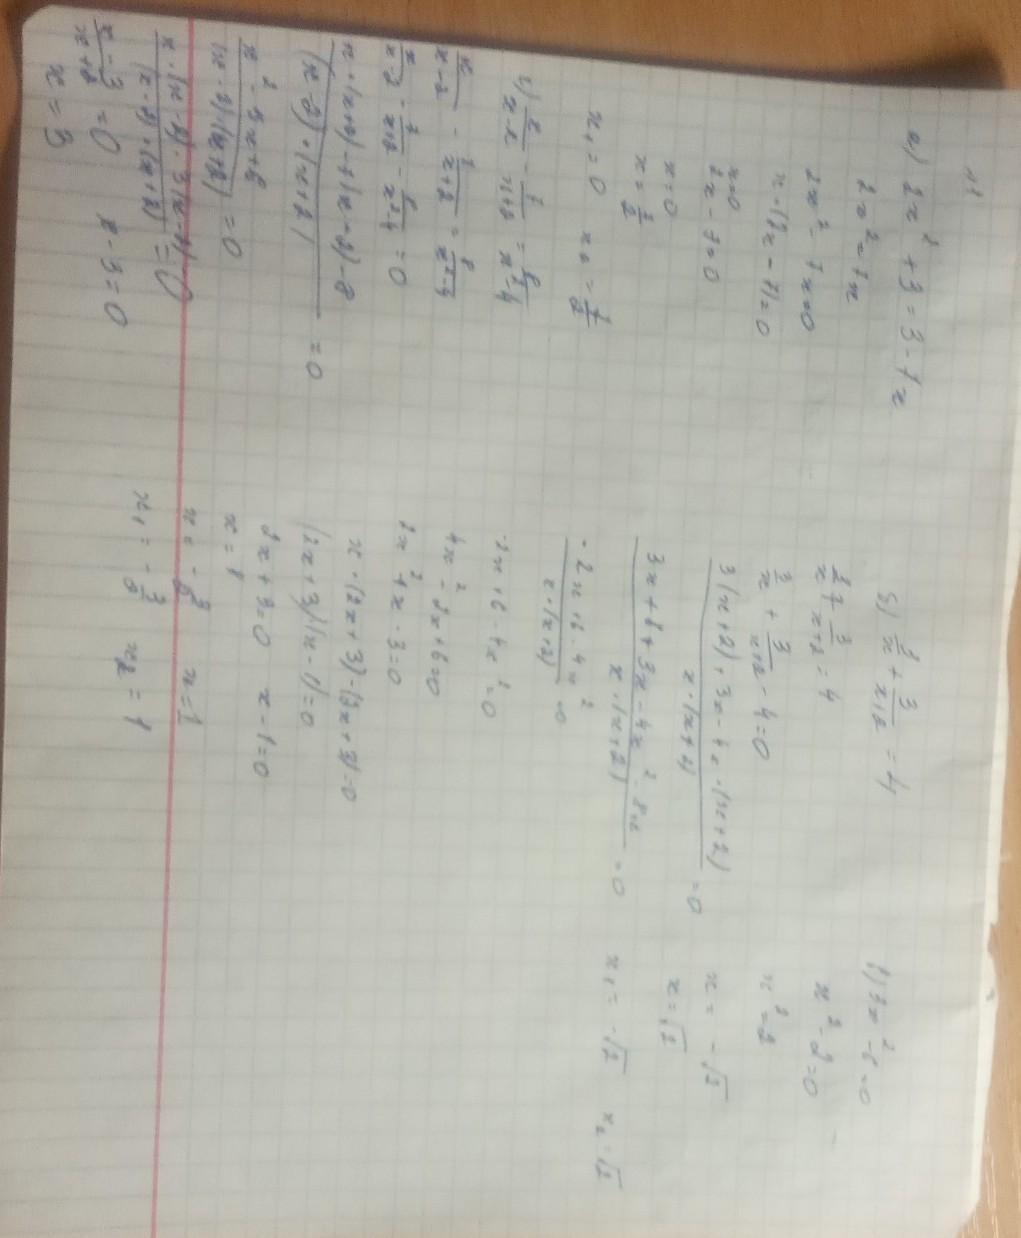 №1
а) 2x² + 3 = 3 - 7x
2x² = 7x
2x² - 7x = 0
x · (2x - 7) = 0
x = 0
2x - 7 = 0
x = 0
x = 7/2
x₁ = 0 x₂ = 7/2
x/(x-2) - 7/(x+2) = 8/(x²-4)
x/(x-2) - 7/(x+2) = 8/(x²-4)
x/(x-2) - 7/(x+2) - 8/(x²-4) = 0
(x · (x+2) - 7(x-2) - 8)/((x-2) · (x+2)) = 0
(x² - 5x + 6)/((x-2) · (x+2)) = 0
(x · (x-2) - 3(x-2))/((x-2) · (x+2)) = 0
(x-3)/(x+2) = 0 x - 3 = 0
x = 3
3/x + 3/(x+2) = 4
3/(x+2) = 4
3/x + 3/(x+2) - 4 = 0
(3(x+2) + 3x - 4x · (x+2))/(x · (x+2)) = 0
(3x + 6 + 3x - 4x² - 8x)/(x · (x+2)) = 0
(-2x + 6 - 4x²)/(x · (x+2)) = 0
-2x + 6 - 4x² = 0
4x² - 2x + 6 = 0
2x² + x - 3 = 0
x · (2x + 3) - (2x + 3) = 0
(2x + 3)(x - 1) = 0
2x + 3 = 0 x - 1 = 0
x = 1
x = - 3/2 x = 1
x₁ = - 3/2 x₂ = 1
3x² - 6 = 0
x² - 2 = 0
x² = 2
x = -√2
x = √2
x₁ = -√2 x₂ = √2